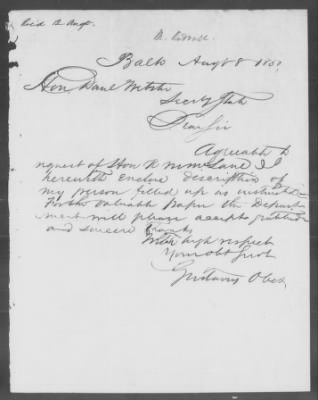 Recd 12 Augt.
Balto Augt 8 1850
Hon Danl Webster
Secty State
Dear Sir
Agreeable to
request of Hon R M McLane I
herewith enclose description of
my person filled up as instructed
For the valuable paper the Depart
ment will please accept
and sincere thanks
With high respect
Your obt Servt
Gustavus Ober